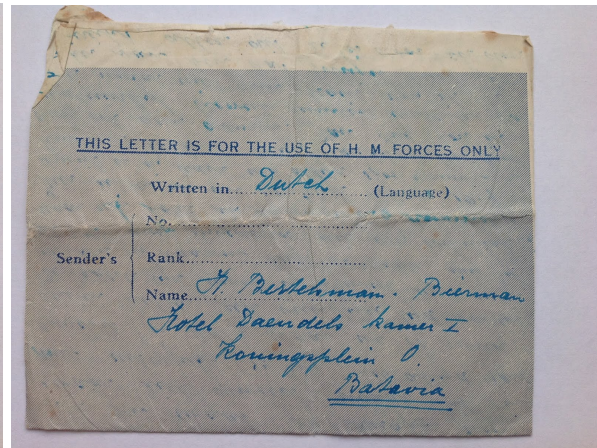 THIS LETTER IS FOR THE USE OF H. M. FORCES ONLY
Written in Dutch (Language)
No.
Sender's Rank
Name H. Bestehman - Bierman
Hotel Daendels kamer I
Koningsplein O
Batavia